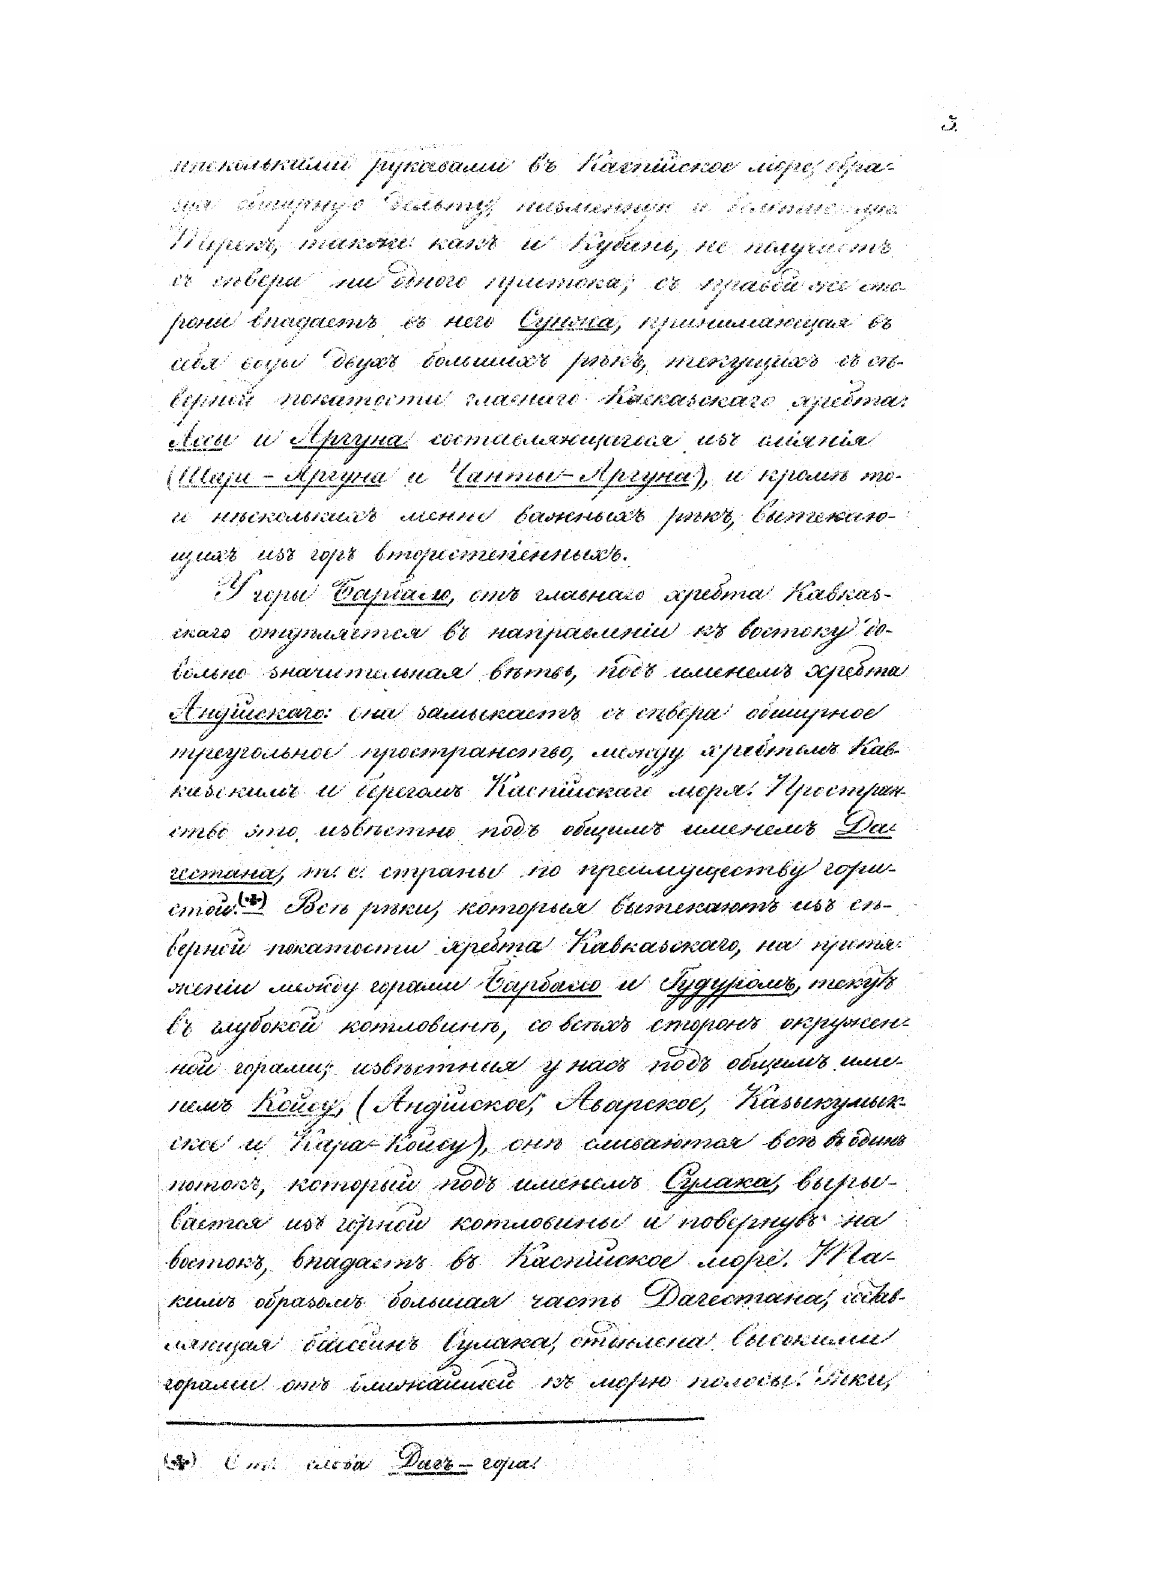 5.
нѣсколькими рукавами въ Каспійское море, обра-
зуя обширную дельту, низменную и болотистую.
Терекъ, также какъ и Кубань, не получаетъ
съ сѣвера ни одного притока; съ правой же сто-
роны впадаетъ въ него Сунжа, принимающая въ
себя воды двухъ большихъ рѣкъ, текущихъ съ сѣ-
верной покатости главнаго Кавказскаго хребта:
Ассы и Аргуна составляющагося изъ сліянія
(Шаро-Аргуна и Чанты-Аргуна), и кромѣ то-
и нѣсколькихъ менѣе важныхъ рѣкъ, вытекаю-
щихъ изъ горъ второстепенныхъ.
У горы Барбало, отъ главнаго хребта Кавказ-
скаго отдѣляется въ направленіи къ востоку до-
вольно значительная вѣтвь, подъ именемъ хребта
Андійскаго: она замыкаетъ съ сѣвера обширное
треугольное пространство, между хребтомъ Кав-
казскимъ и берегомъ Каспійскаго моря. Простран-
ство это извѣстно подъ общимъ именемъ Да-
гестана, т. е. страны по преимуществу гори-
стой. (*) Всѣ рѣки, которыя вытекаютъ изъ сѣ-
верной покатости хребта Кавказскаго, на протя-
женіи между горами Барбало и Гудуромъ, текутъ
въ глубокой котловинѣ, со всѣхъ сторонъ окружен-
ной горами; извѣстныя у насъ подъ общимъ име-
немъ Койсу, (Андійское, Аварское, Казыкумык-
ское и Кара-Койсу), онѣ сливаются всѣ въ одинъ
потокъ, который подъ именемъ Сулака, выры-
вается изъ горной котловины и повернувъ на
востокъ, впадаетъ въ Каспійское море. Та-
кимъ образомъ большая часть Дагестана, состав-
ляющая бассинъ Сулака, отдѣлена высокими
горами отъ ближайшей къ морю полосы. Рѣки,
(*) Отъ слова Дагъ - гора.